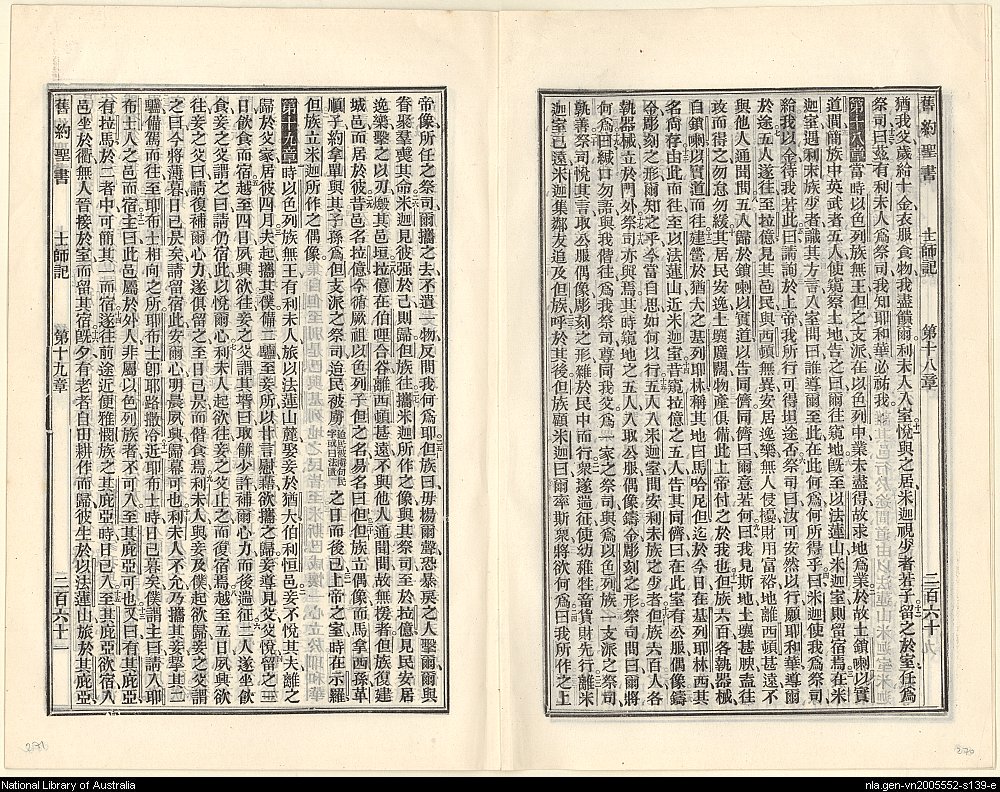 舊約聖書 士師記 第十八章 二百六十九
猶我父歲給十金衣服食物我盡饋爾利未人入室悅與之居米迦視少者若子留之於室任爲
祭司曰茲有利未人爲祭司我知耶和華必祐我
第十八章 當時以色列族無王但之支派在以色列中業未盡得故求地爲業於故土鎖喇以實
道間簡族中英武者五人使窺察土地告之曰爾往窺地旣至以法蓮山米迦室則留宿焉在米
迦室遇利未族少者識其方言入室問曰誰導爾至此在此何爲何所得乎曰米迦使我爲祭司
給我以金待我若此曰請詢於上帝我所行可得坦途否祭司曰汝可安然以行願耶和華導爾
於途五人遂往至拉億見其邑民與西頓無異安居逸樂無人侵擾財用富裕地離西頓甚遠不
與他人通聞問五人歸於鎖喇以實道以告同儕同儕曰爾意若何曰我見斯地土壤甚腴盍往
攻而得之勿怠勿緩其居民安逸土壤廣闊物產俱備此上帝付之於我也但族六百各執器械
自鎖喇以實道而往建營於猶大之基列耶林稱其地曰馬哈尼但迄於今日在基列耶林西其
名尙存由此而往至以法蓮山近米迦室昔窺拉億之五人告其同儕曰在此室有公服偶像鑄
金彫刻之形爾知之乎今當自思如何以行五人入米迦室問安利未族之少者但族六百人各
執器械立於門外祭司亦與焉其時窺地之五人入取公服偶像鑄金彫刻之形祭司問曰將
何爲曰緘口勿語與我偕往爲我祭司尊同我父爲一家之祭司與爲以色列族一支派之祭司
孰善祭司悅其言取公服偶像彫刻之形雜於民中而行衆遂遄征使幼稚牲畜貨財先行離米
迦室已遠米迦集鄰友追及但族呼於其後但族顧米迦曰爾率斯衆將欲何爲曰我所作之上
帝像所任之祭司爾攜之去不遺一物反問我何爲耶但族曰毋揚爾聲恐暴戾之人擊爾爾與
眷聚羣喪其命米迦見彼强於己則歸但族往攜米迦所作之像與其祭司至於拉億見民安居
逸樂擊之以刃燬其邑垣拉億在伯哩合谷離西頓甚遠不與他人通聞問故無援者但族復建
城邑而居於彼昔邑名拉億今循厥祖以色列子但之名易名曰但但族立偶像而馬拿西孫革
順子約拿單與其子孫爲但支派之祭司迨民被虜之日而後已上帝之室時在示羅
但族立米迦所作之偶像
第十九章 時以色列族無王有利未人旅以法蓮山麓娶妾於猶大伯利恒邑妾不悅其夫離之
歸於父家居彼四月夫起攜其僕備二驢至妾所以甘言慰藉欲攜之歸妾導見父父悅留之三
日飲食而宿越至四日夙興欲往妾之父謂其壻曰取餅少許補爾心力而後遄征二人遂坐飲
食妾之父謂之曰請仍宿此以悅爾心利未人起欲往妾之父止之而復宿焉越至五日夙興欲
往妾之父曰請復補爾心力遂俱留之至日已昃而偕食焉利未人與妾及僕起欲歸妾之父謂
之曰今將薄暮日已昃矣請留宿此安爾心明晨夙興歸幕可也利未人不允乃攜其妾挈其二
驢備駕而往至耶布士相向之所耶布士卽耶路撒冷近耶布士時日已暮矣僕謂主曰請入耶
布士人之邑而宿主曰此邑屬於外人非屬以色列族者不可入至其庇亞可也又曰有其庇亞
有拉馬於二者中可簡其一而宿遂往前途近便雅憫族之其庇亞時日已入至其庇亞欲宿入
邑坐於衢無人管接於室而留其宿旣夕有老者自田耕作而歸彼生於以法蓮山旅於其庇亞
舊約聖書 士師記 第十九章 二百六十
271
270
National Library of Australia
nla.gen-vn2005552-s139-e